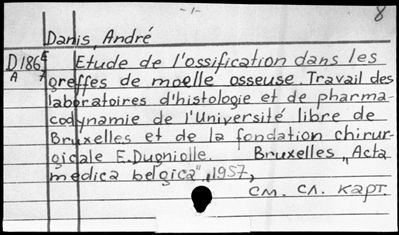 -1-
8
Danis, André
D186E Etude de l'ossification dans les
A 7 greffes de moelle osseuse. Travail des
laboratoires d'histologie et de pharma-
codynamie de l'Université libre de
Bruxelles et de la fondation chirur-
gicale E. Dugniolle. Bruxelles „Acta
medica belgica", 1957,
см. сл. карт.